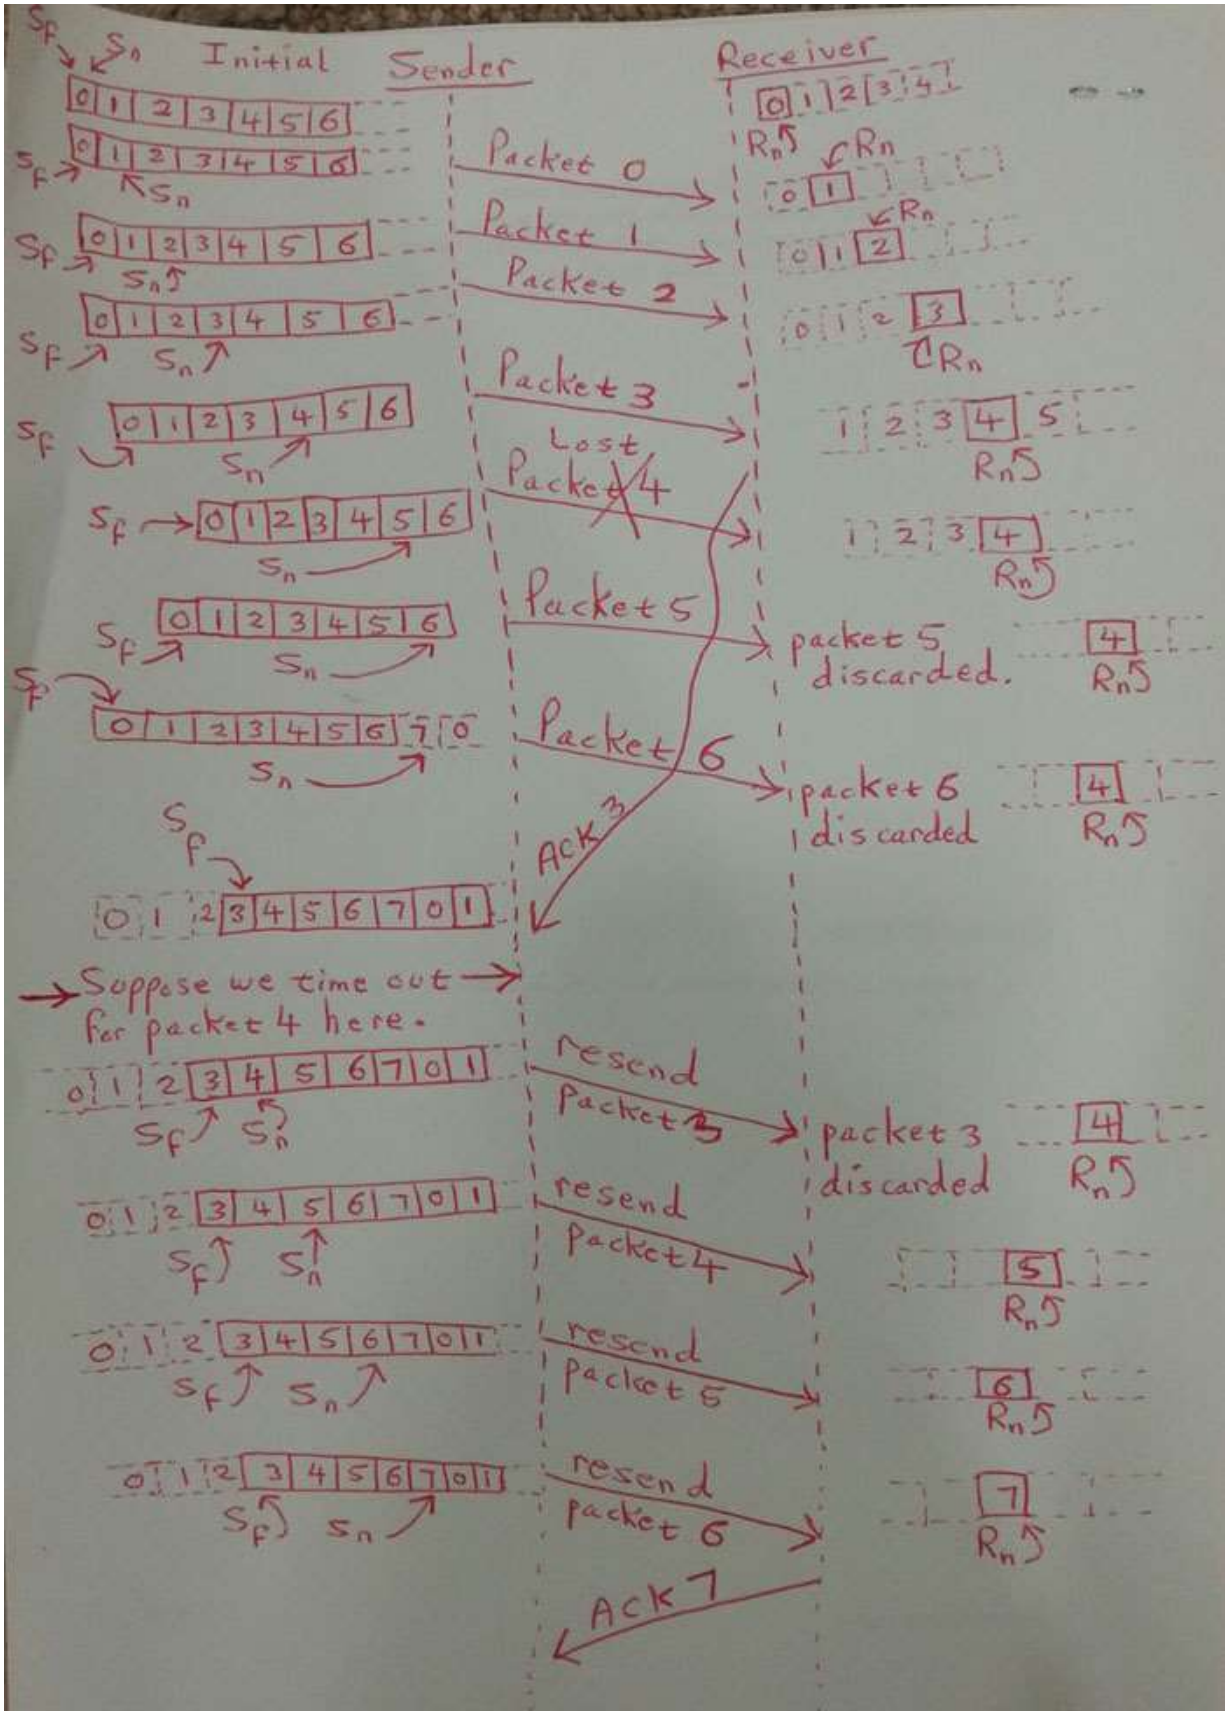 Sf Sn Initial Sender Receiver
0 1 2 3 4 5 6
0 1 2 3 4
Rn
0 1 2 3 4 5 6
Sf Sn
Packet 0
Rn
0 1
Sf 0 1 2 3 4 5 6
Sn
Packet 1
Rn
0 1 2
0 1 2 3 4 5 6
Sf Sn
Packet 2
0 1 2 3
Rn
Sf 0 1 2 3 4 5 6
Sn
Packet 3
1 2 3 4 5
Rn
Lost
Sf 0 1 2 3 4 5 6
Sn
Packet 4
1 2 3 4
Rn
0 1 2 3 4 5 6
Sf Sn
Packet 5
packet 5
discarded.
4
Rn
Sf
0 1 2 3 4 5 6 7 0
Sn
Packet 6
packet 6
discarded
4
Rn
Sf
ACK 3
0 1 2 3 4 5 6 7 0 1
Suppose we time out
for packet 4 here.
0 1 2 3 4 5 6 7 0 1
Sf Sn
resend
Packet 3
packet 3
discarded
4
Rn
0 1 2 3 4 5 6 7 0 1
Sf Sn
resend
packet 4
5
Rn
0 1 2 3 4 5 6 7 0 1
Sf Sn
resend
packet 5
6
Rn
0 1 2 3 4 5 6 7 0 1
Sf Sn
resend
packet 6
7
Rn
ACK 7